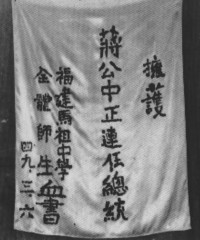 擁護
蔣公中正連任總統
福建馬祖中學
全體師生血書
四九、三、六